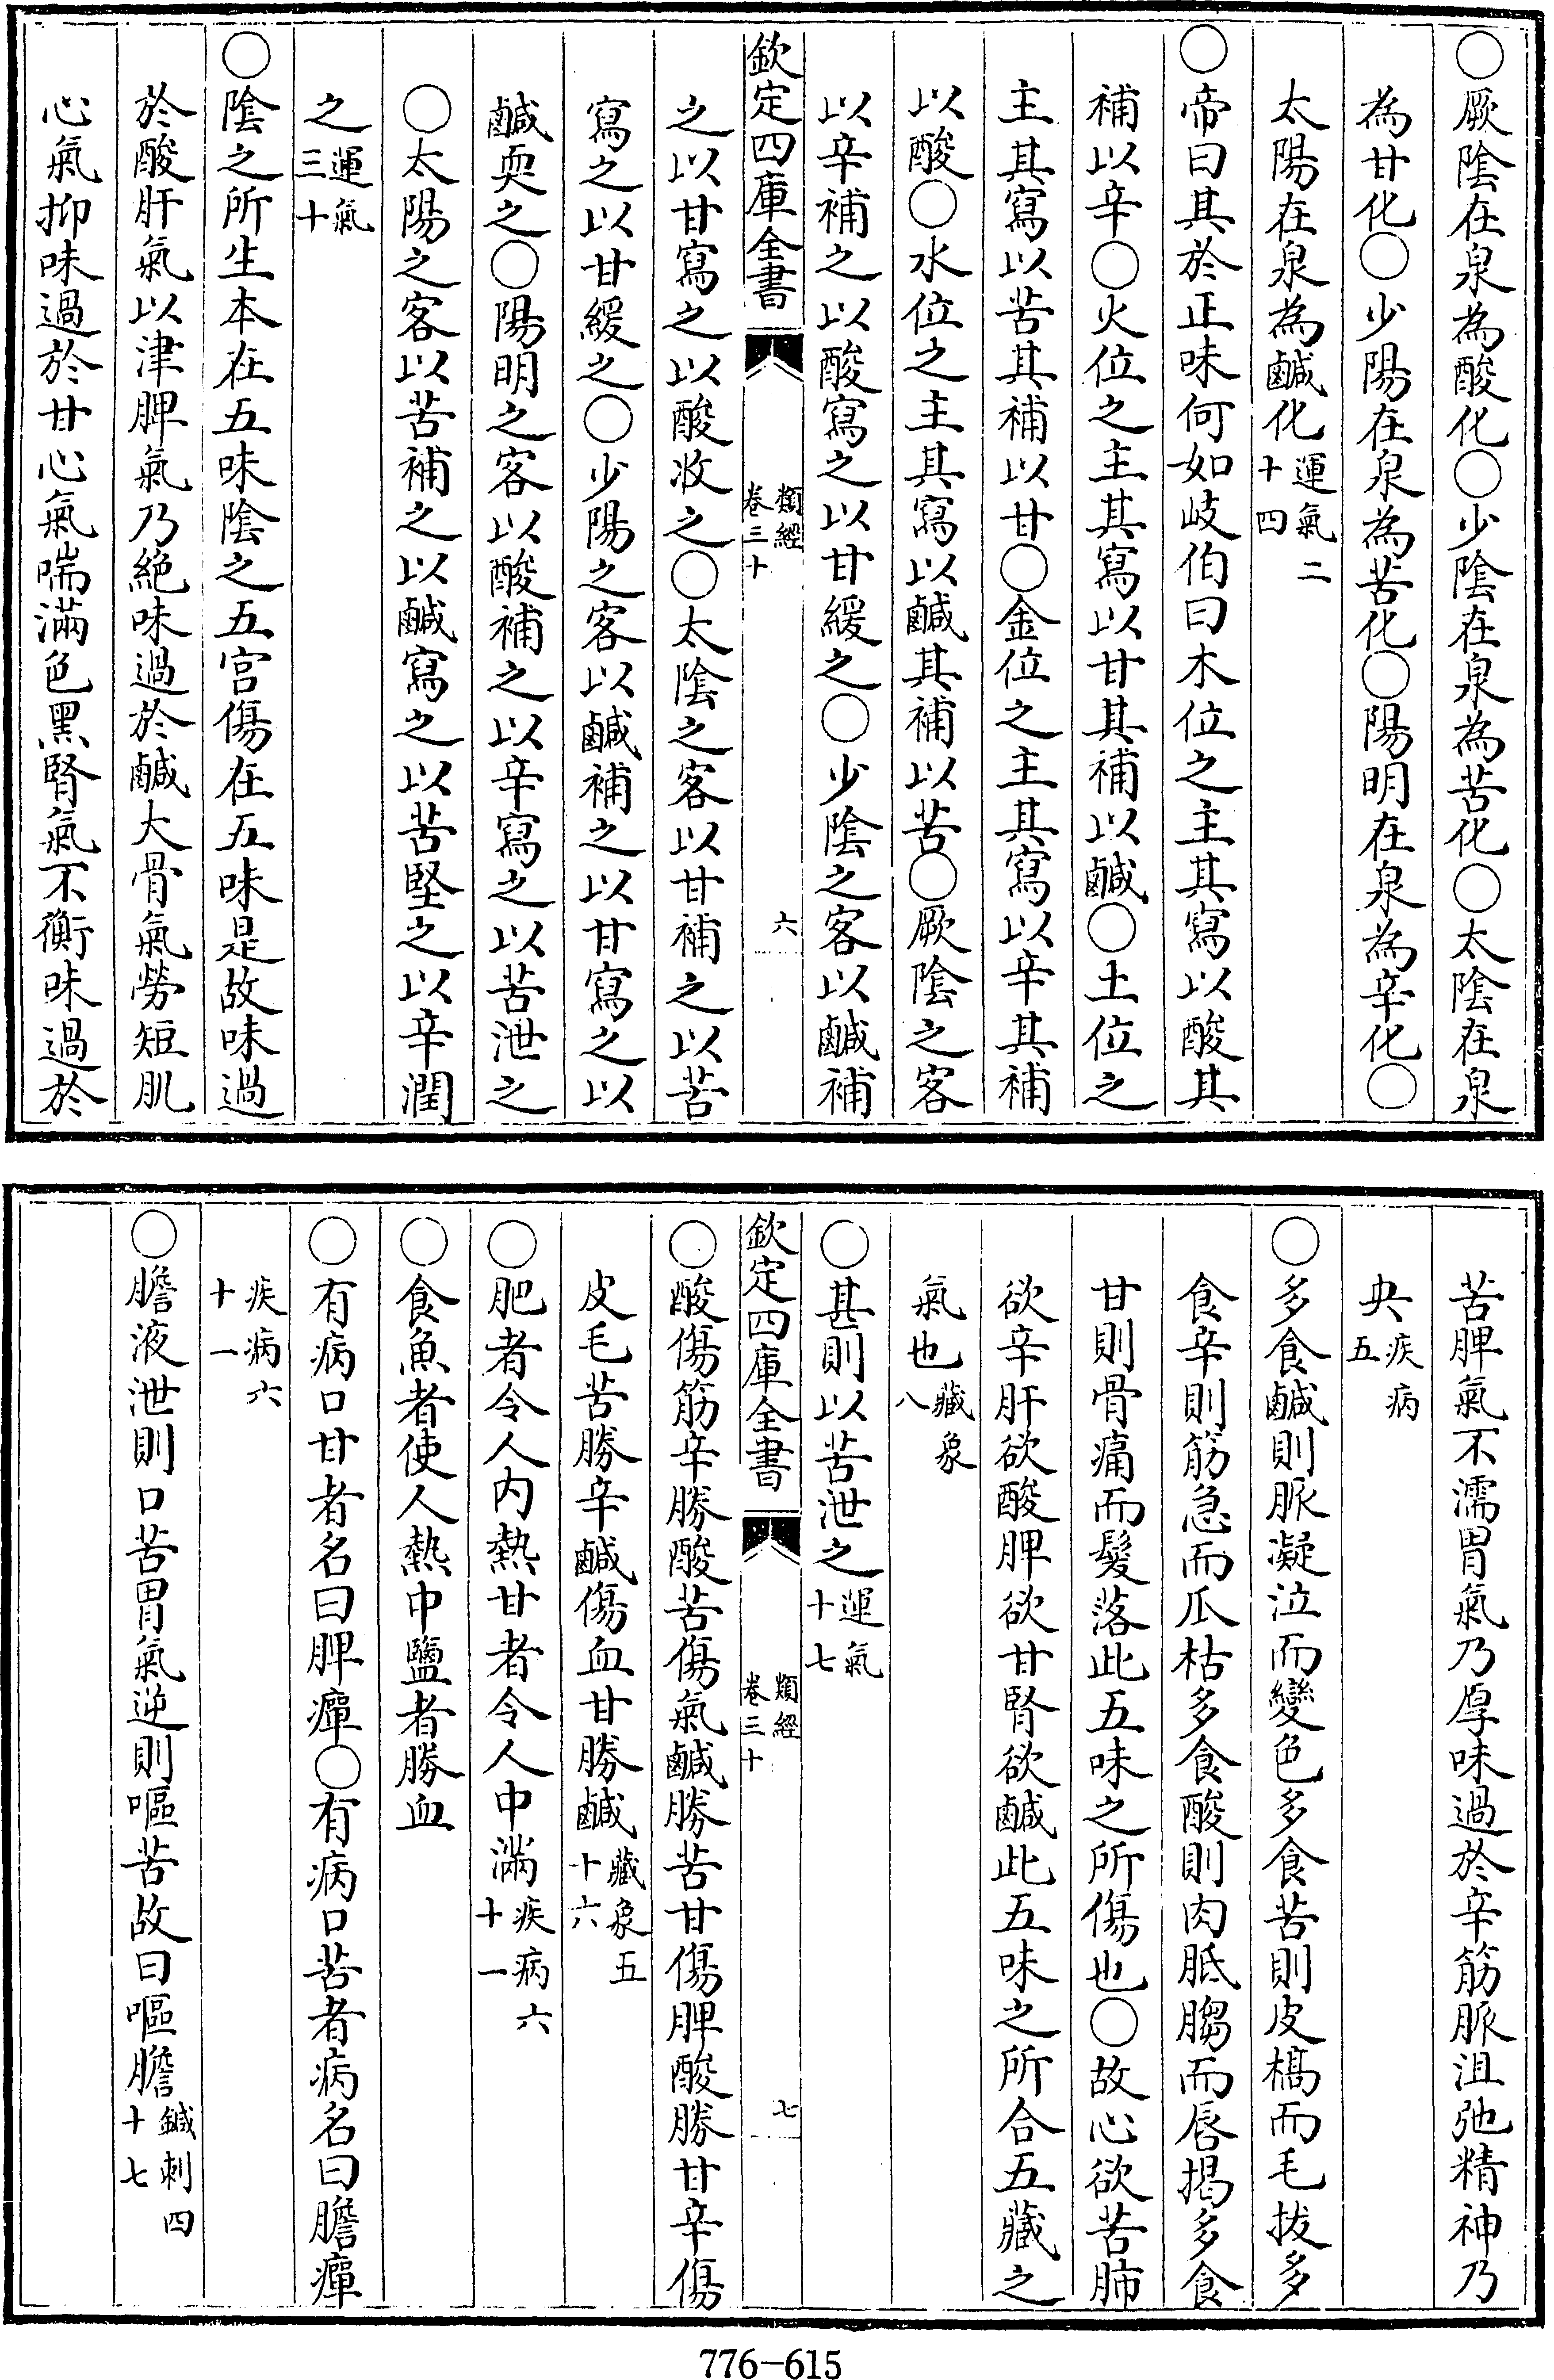 ○厥陰在泉為酸化○少陰在泉為苦化○太陰在泉
為甘化○少陽在泉為苦化○陽明在泉為辛化○
太陽在泉為鹹化運氣二十四
○帝曰其於正味何如岐伯曰木位之主其寫以酸其
補以辛○火位之主其寫以甘其補以鹹○土位之
主其寫以苦其補以甘○金位之主其寫以辛其補
以酸○水位之主其寫以鹹其補以苦○厥陰之客
以辛補之以酸寫之以甘緩之○少陰之客以鹹補
欽定四庫全書 類經卷三十 六
之以甘寫之以酸收之○太陰之客以甘補之以苦
寫之以甘緩之○少陽之客以鹹補之以甘寫之以
鹹耎之○陽明之客以酸補之以辛寫之以苦泄之
○太陽之客以苦補之以鹹寫之以苦堅之以辛潤
之運氣三十
○陰之所生本在五味陰之五宫傷在五味是故味過
於酸肝氣以津脾氣乃絕味過於鹹大骨氣勞短肌
心氣抑味過於甘心氣喘滿色黑腎氣不衡味過於
苦脾氣不濡胃氣乃厚味過於辛筋脈沮弛精神乃
央疾病五
○多食鹹則脈凝泣而變色多食苦則皮槁而毛拔多
食辛則筋急而爪枯多食酸則肉胝䐢而唇揭多食
甘則骨痛而髮落此五味之所傷也○故心欲苦肺
欲辛肝欲酸脾欲甘腎欲鹹此五味之所合五藏之
氣也藏象八
○甚則以苦泄之運氣十七
欽定四庫全書 類經卷三十 七
○酸傷筋辛勝酸苦傷氣鹹勝苦甘傷脾酸勝甘辛傷
皮毛苦勝辛鹹傷血甘勝鹹藏象五十六
○肥者令人内熱甘者令人中滿疾病六十一
○食魚者使人熱中鹽者勝血
○有病口甘者名曰脾癉○有病口苦者病名曰膽癉
疾病六十一
○膽液泄則口苦胃氣逆則嘔苦故曰嘔膽鍼刺四十七
776-615